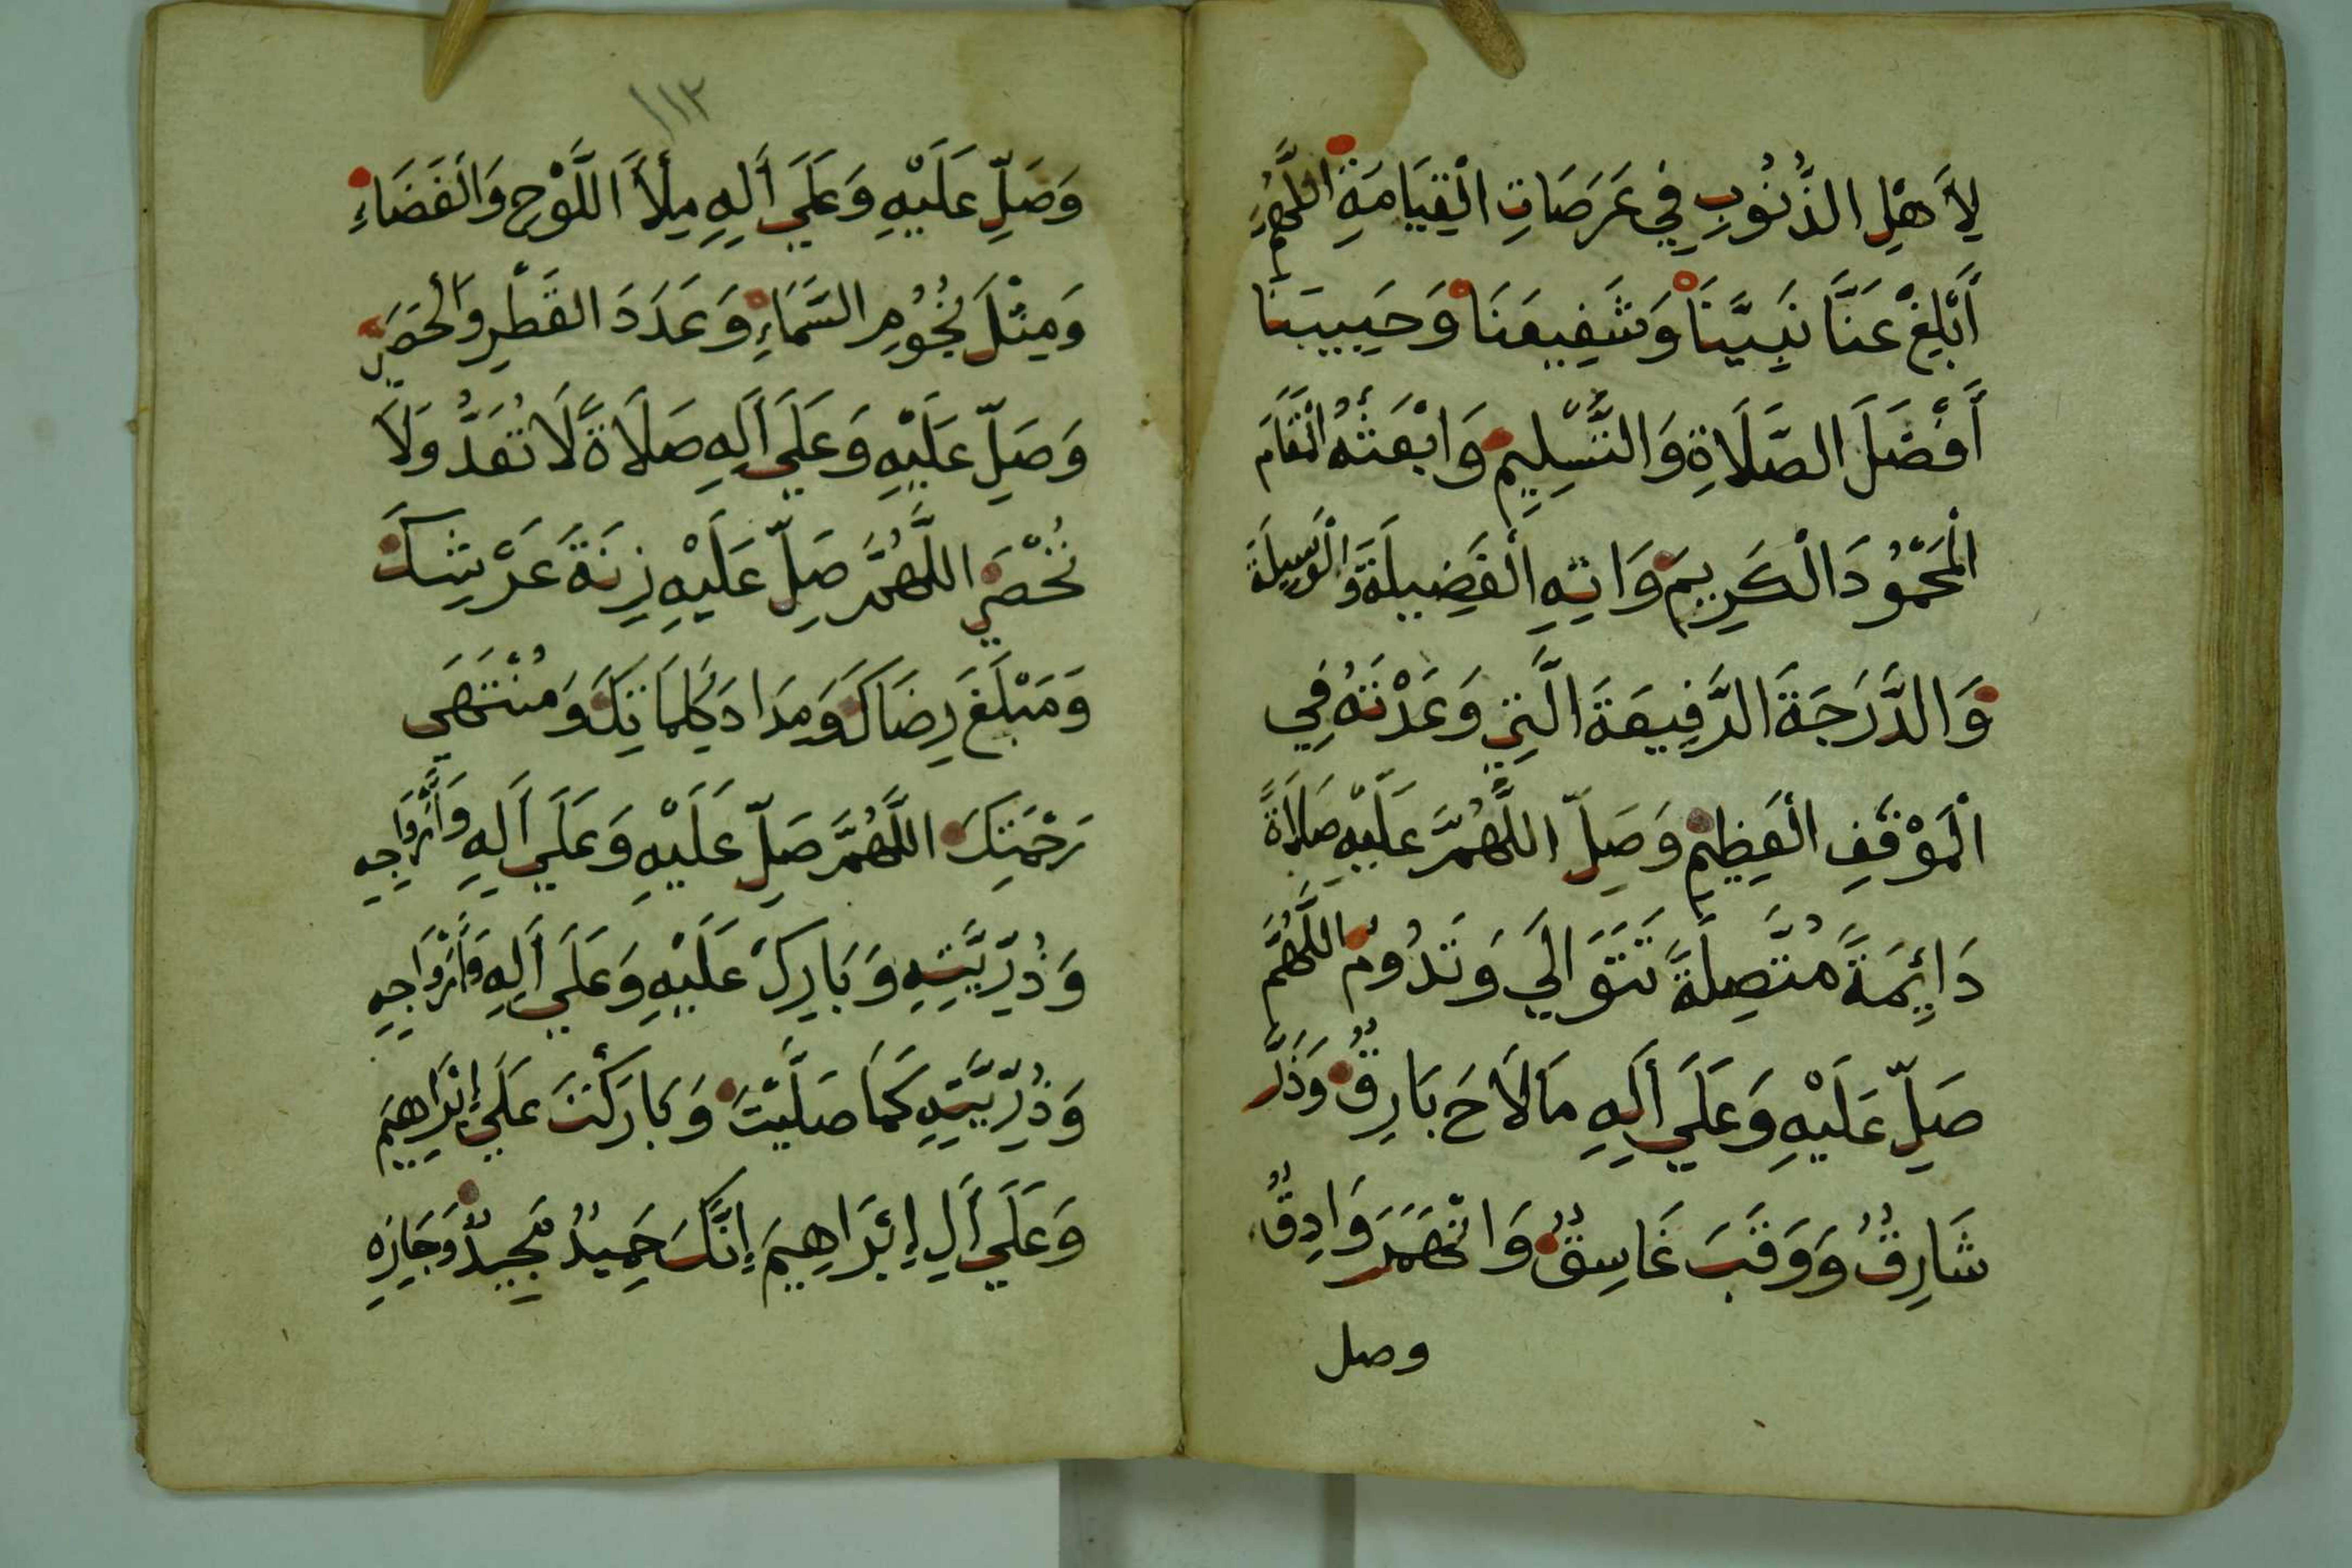 لِأَهْلِ الذُّنُوبِ فِي عَرَصَاتِ الْقِيَامَةِ اللَّهُمَّ
أَبْلِغْ عَنَّا نَبِيَّنَا وَشَفِيعَنَا وَحَبِيبَنَا
أَفْضَلَ الصَّلَاةِ وَالتَّسْلِيمِ وَابْعَثْهُ الْمَقَامَ
الْمَحْمُودَ الْكَرِيمَ وَاتِهِ الْفَضِيلَةَ وَالْوَسِيلَةَ
وَالدَّرَجَةَ الرَّفِيعَةَ الَّتِي وَعَدْتَهُ فِي
الْمَوْقِفِ الْعَظِيمِ وَصَلِّ اللَّهُمَّ عَلَيْهِ صَلَاةً
دَائِمَةً مُتَّصِلَةً تَتَوَالَي وَتَدُومُ اللَّهُمَّ
صَلِّ عَلَيْهِ وَعَلَي أَلِهِ مَا لَاحَ بَارِقٌ وَذَرَّ
شَارِقٌ وَوَقَبَ غَاسِقٌ وَانْهَمَرَ وَادِقٌ
وصل
١١٣
وَصَلِّ عَلَيْهِ وَعَلَي أَلِهِ مِلْأَ اللَّوْحِ وَالْفَضَاءِ
وَمِثْلَ نُجُومِ السَّمَاءِ وَعَدَدَ الْقَطْرِ وَالْحَصَي
وَصَلِّ عَلَيْهِ وَعَلَي أَلِهِ صَلَاةً لَا تُعَدُّ وَلَا
تُحْصَي اللَّهُمَّ صَلِّ عَلَيْهِ زِنَةَ عَرْشِكَ
وَمَبْلَغَ رِضَاكَ وَمِدَادَ كَلِمَاتِكَ وَمُنْتَهَي
رَحْمَتِكَ اللَّهُمَّ صَلِّ عَلَيْهِ وَعَلَي أَلِهِ وَأَزْوَاجِهِ
وَذُرِّيَّتِهِ وَبَارِكْ عَلَيْهِ وَعَلَي أَلِهِ وَأَزْوَاجِهِ
وَذُرِّيَّتِهِ كَمَا صَلَّيْتَ وَبَارَكْتَ عَلَي إِبْرَاهِيمَ
وَعَلَي أَلِ إِبْرَاهِيمَ إِنَّكَ حَمِيدٌ مَجِيدٌ وَجَازِهِ